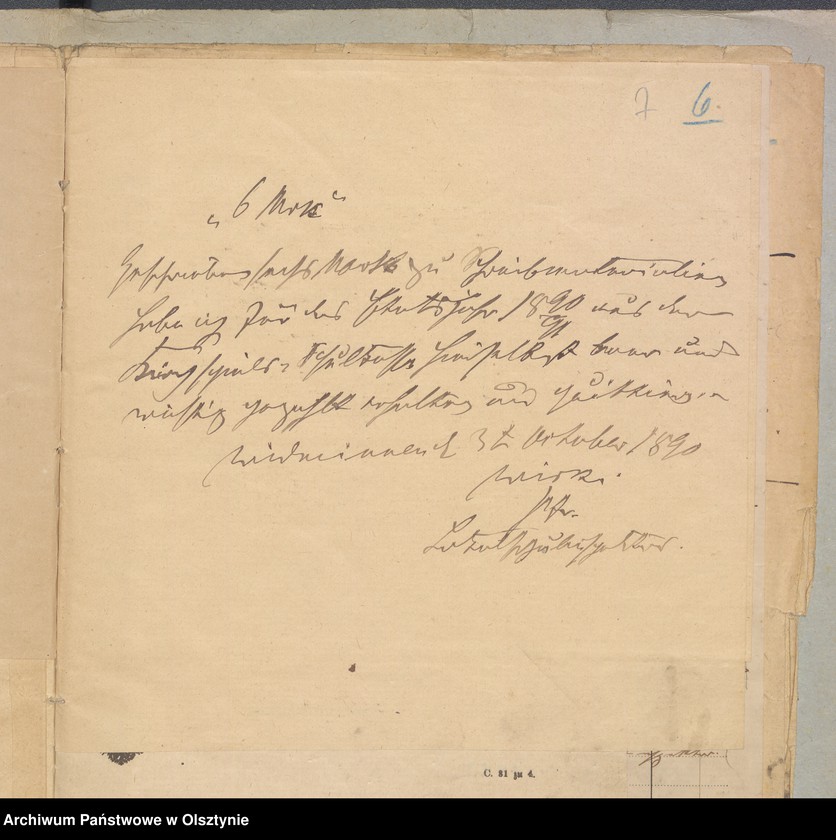 7 6.
„6 Mrk“
Geschrieben sechs Mark zu Schreibmaterialien
habe ich für das Etatsjahr 1890/91 aus der
Kirchspiels-Schulkasse hierselbst baar und
richtig gezahlt erhalten und quittire
Widminnen d 3t October 1890
Pfr.
Lokalschulinspektor.
C. 81 zu 4.
Archiwum Państwowe w Olsztynie